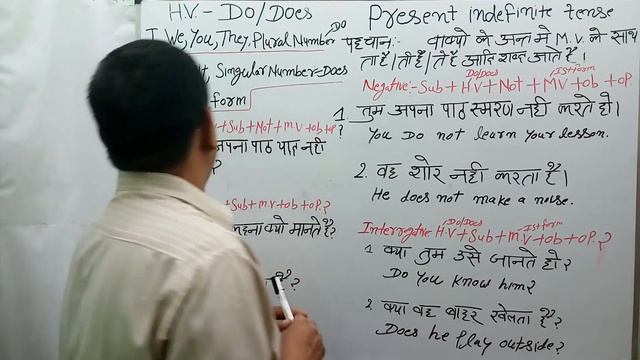 H.V. - Do/Does Present indefinite tense
I, We, You, They, Plural Number Do
पहचान:- वाक्यो के अन्त मे M.V. के साथ
It, Singular Number = Does
ता है / ती है / ते है आदि शब्द आते है।
form
Do/Does Ist form
Negative:- Sub + H.V + Not + M.V + ob + OP.
1. तुम अपना पाठ स्मरण नही करते हो।
You Do not learn Your lesson.
+ Sub + Not + M.V + ob + op?
अपना पाठ याद नही
?
2. वह शोर नही करता है।
He does not make a noise.
+ Sub + M.V + ob + OP.?
कहना क्यो मानते है?
Do/Does Ist form
Interrogative H.V + Sub + M.V + ob + OP.?
1 क्या तुम उसे जानते हो?
Do You know him?
है?
2. क्या वह बाहर खेलता है?
Does he Play outside?